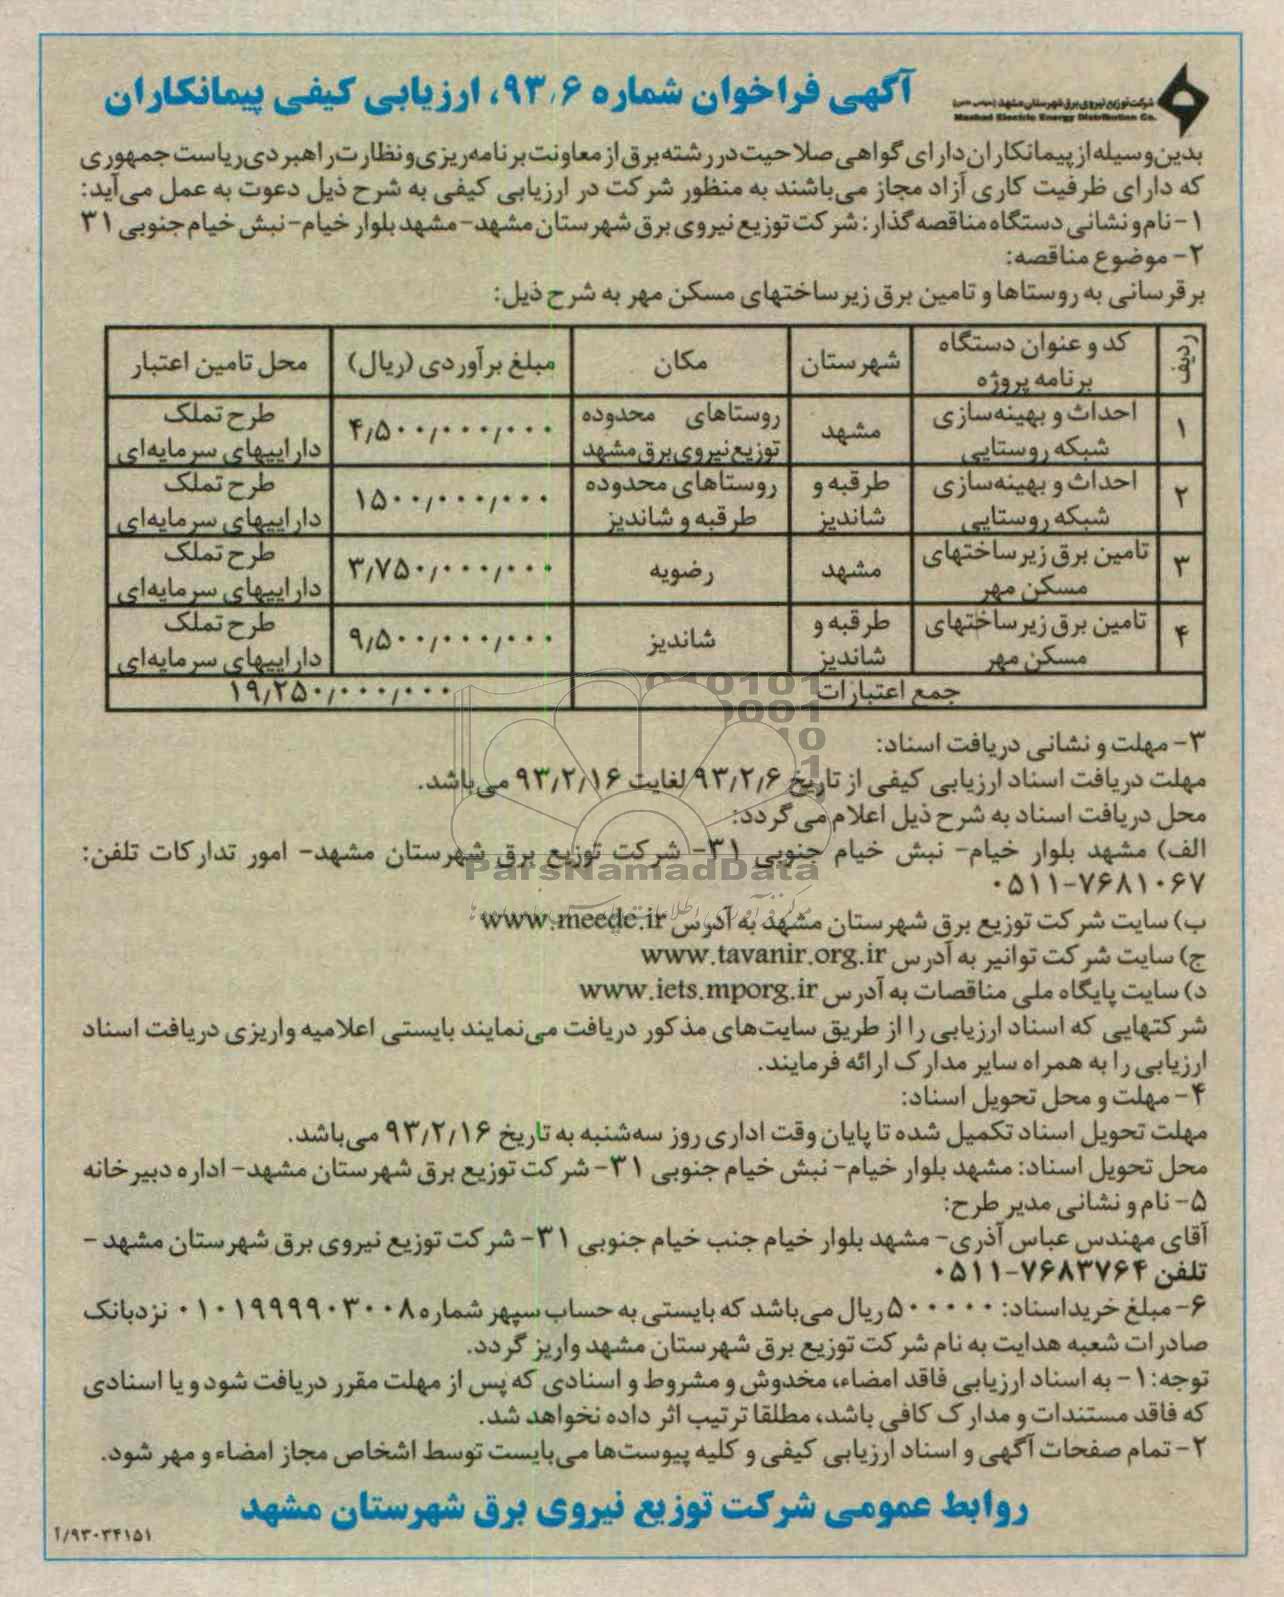 آگهی فراخوان شماره ۹۳٫۶، ارزیابی کیفی پیمانکاران
شرکت توزیع نیروی برق شهرستان مشهد (سهامی خاص)
Mashad Electric Energy Distribution Co.
بدین‌وسیله از پیمانکاران دارای گواهی صلاحیت در رشته برق از معاونت برنامه‌ریزی و نظارت راهبردی ریاست جمهوری
که دارای ظرفیت کاری آزاد مجاز می‌باشند به منظور شرکت در ارزیابی کیفی به شرح ذیل دعوت به عمل می‌آید:
۱- نام و نشانی دستگاه مناقصه گذار: شرکت توزیع نیروی برق شهرستان مشهد- مشهد بلوار خیام- نبش خیام جنوبی ۳۱
۲- موضوع مناقصه:
برقرسانی به روستاها و تامین برق زیرساختهای مسکن مهر به شرح ذیل:
ردیف | کد و عنوان دستگاه برنامه پروژه | شهرستان | مکان | مبلغ برآوردی (ریال) | محل تامین اعتبار
۱ | احداث و بهینه‌سازی شبکه روستایی | مشهد | روستاهای محدوده توزیع نیروی برق مشهد | ۴٫۵۰۰٫۰۰۰٫۰۰۰ | طرح تملک داراییهای سرمایه‌ای
۲ | احداث و بهینه‌سازی شبکه روستایی | طرقبه و شاندیز | روستاهای محدوده طرقبه و شاندیز | ۱۵۰۰٫۰۰۰٫۰۰۰ | طرح تملک داراییهای سرمایه‌ای
۳ | تامین برق زیرساختهای مسکن مهر | مشهد | رضویه | ۳٫۷۵۰٫۰۰۰٫۰۰۰ | طرح تملک داراییهای سرمایه‌ای
۴ | تامین برق زیرساختهای مسکن مهر | طرقبه و شاندیز | شاندیز | ۹٫۵۰۰٫۰۰۰٫۰۰۰ | طرح تملک داراییهای سرمایه‌ای
جمع اعتبارات | ۱۹٫۲۵۰٫۰۰۰٫۰۰۰
۳- مهلت و نشانی دریافت اسناد:
مهلت دریافت اسناد ارزیابی کیفی از تاریخ ۹۳٫۲٫۶ لغایت ۹۳٫۲٫۱۶ می‌باشد.
محل دریافت اسناد به شرح ذیل اعلام می‌گردد:
الف) مشهد بلوار خیام- نبش خیام جنوبی ۳۱- شرکت توزیع برق شهرستان مشهد- امور تدارکات تلفن:
۰۵۱۱-۷۶۸۱۰۶۷
ParsNamadData
ب) سایت شرکت توزیع برق شهرستان مشهد به آدرس www.meedc.ir
ج) سایت شرکت توانیر به آدرس www.tavanir.org.ir
د) سایت پایگاه ملی مناقصات به آدرس www.iets.mporg.ir
شرکتهایی که اسناد ارزیابی را از طریق سایت‌های مذکور دریافت می‌نمایند بایستی اعلامیه واریزی دریافت اسناد
ارزیابی را به همراه سایر مدارک ارائه فرمایند.
۴- مهلت و محل تحویل اسناد:
مهلت تحویل اسناد تکمیل شده تا پایان وقت اداری روز سه‌شنبه به تاریخ ۹۳٫۲٫۱۶ می‌باشد.
محل تحویل اسناد: مشهد بلوار خیام- نبش خیام جنوبی ۳۱- شرکت توزیع برق شهرستان مشهد- اداره دبیرخانه
۵- نام و نشانی مدیر طرح:
آقای مهندس عباس آذری- مشهد بلوار خیام جنب خیام جنوبی ۳۱- شرکت توزیع نیروی برق شهرستان مشهد -
تلفن ۰۵۱۱-۷۶۸۳۷۶۴
۶- مبلغ خرید اسناد: ۵۰۰۰۰۰ ریال می‌باشد که بایستی به حساب سپهر شماره ۰۱۰۱۹۹۹۹۰۳۰۰۸ نزد بانک
صادرات شعبه هدایت به نام شرکت توزیع برق شهرستان مشهد واریز گردد.
توجه: ۱- به اسناد ارزیابی فاقد امضاء، مخدوش و مشروط و اسنادی که پس از مهلت مقرر دریافت شود و یا اسنادی
که فاقد مستندات و مدارک کافی باشد، مطلقا ترتیب اثر داده نخواهد شد.
۲- تمام صفحات آگهی و اسناد ارزیابی کیفی و کلیه پیوست‌ها می‌بایست توسط اشخاص مجاز امضاء و مهر شود.
روابط عمومی شرکت توزیع نیروی برق شهرستان مشهد
۹۳۰۳۴۱۵۱/آ